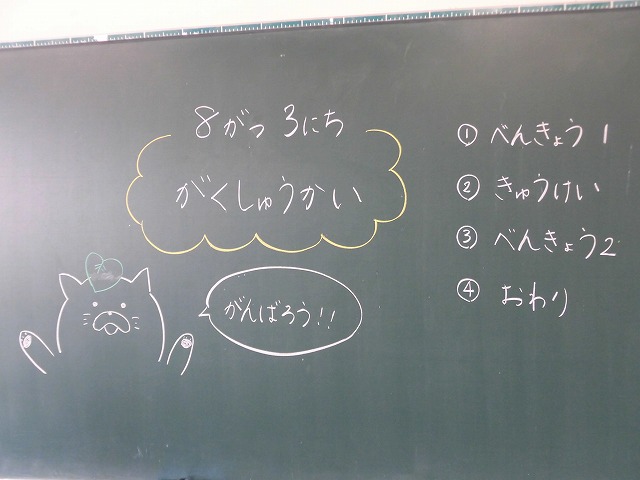 8がつ3にち
がくしゅうかい
① べんきょう1
② きゅうけい
③ べんきょう2
④ おわり
がんばろう!!